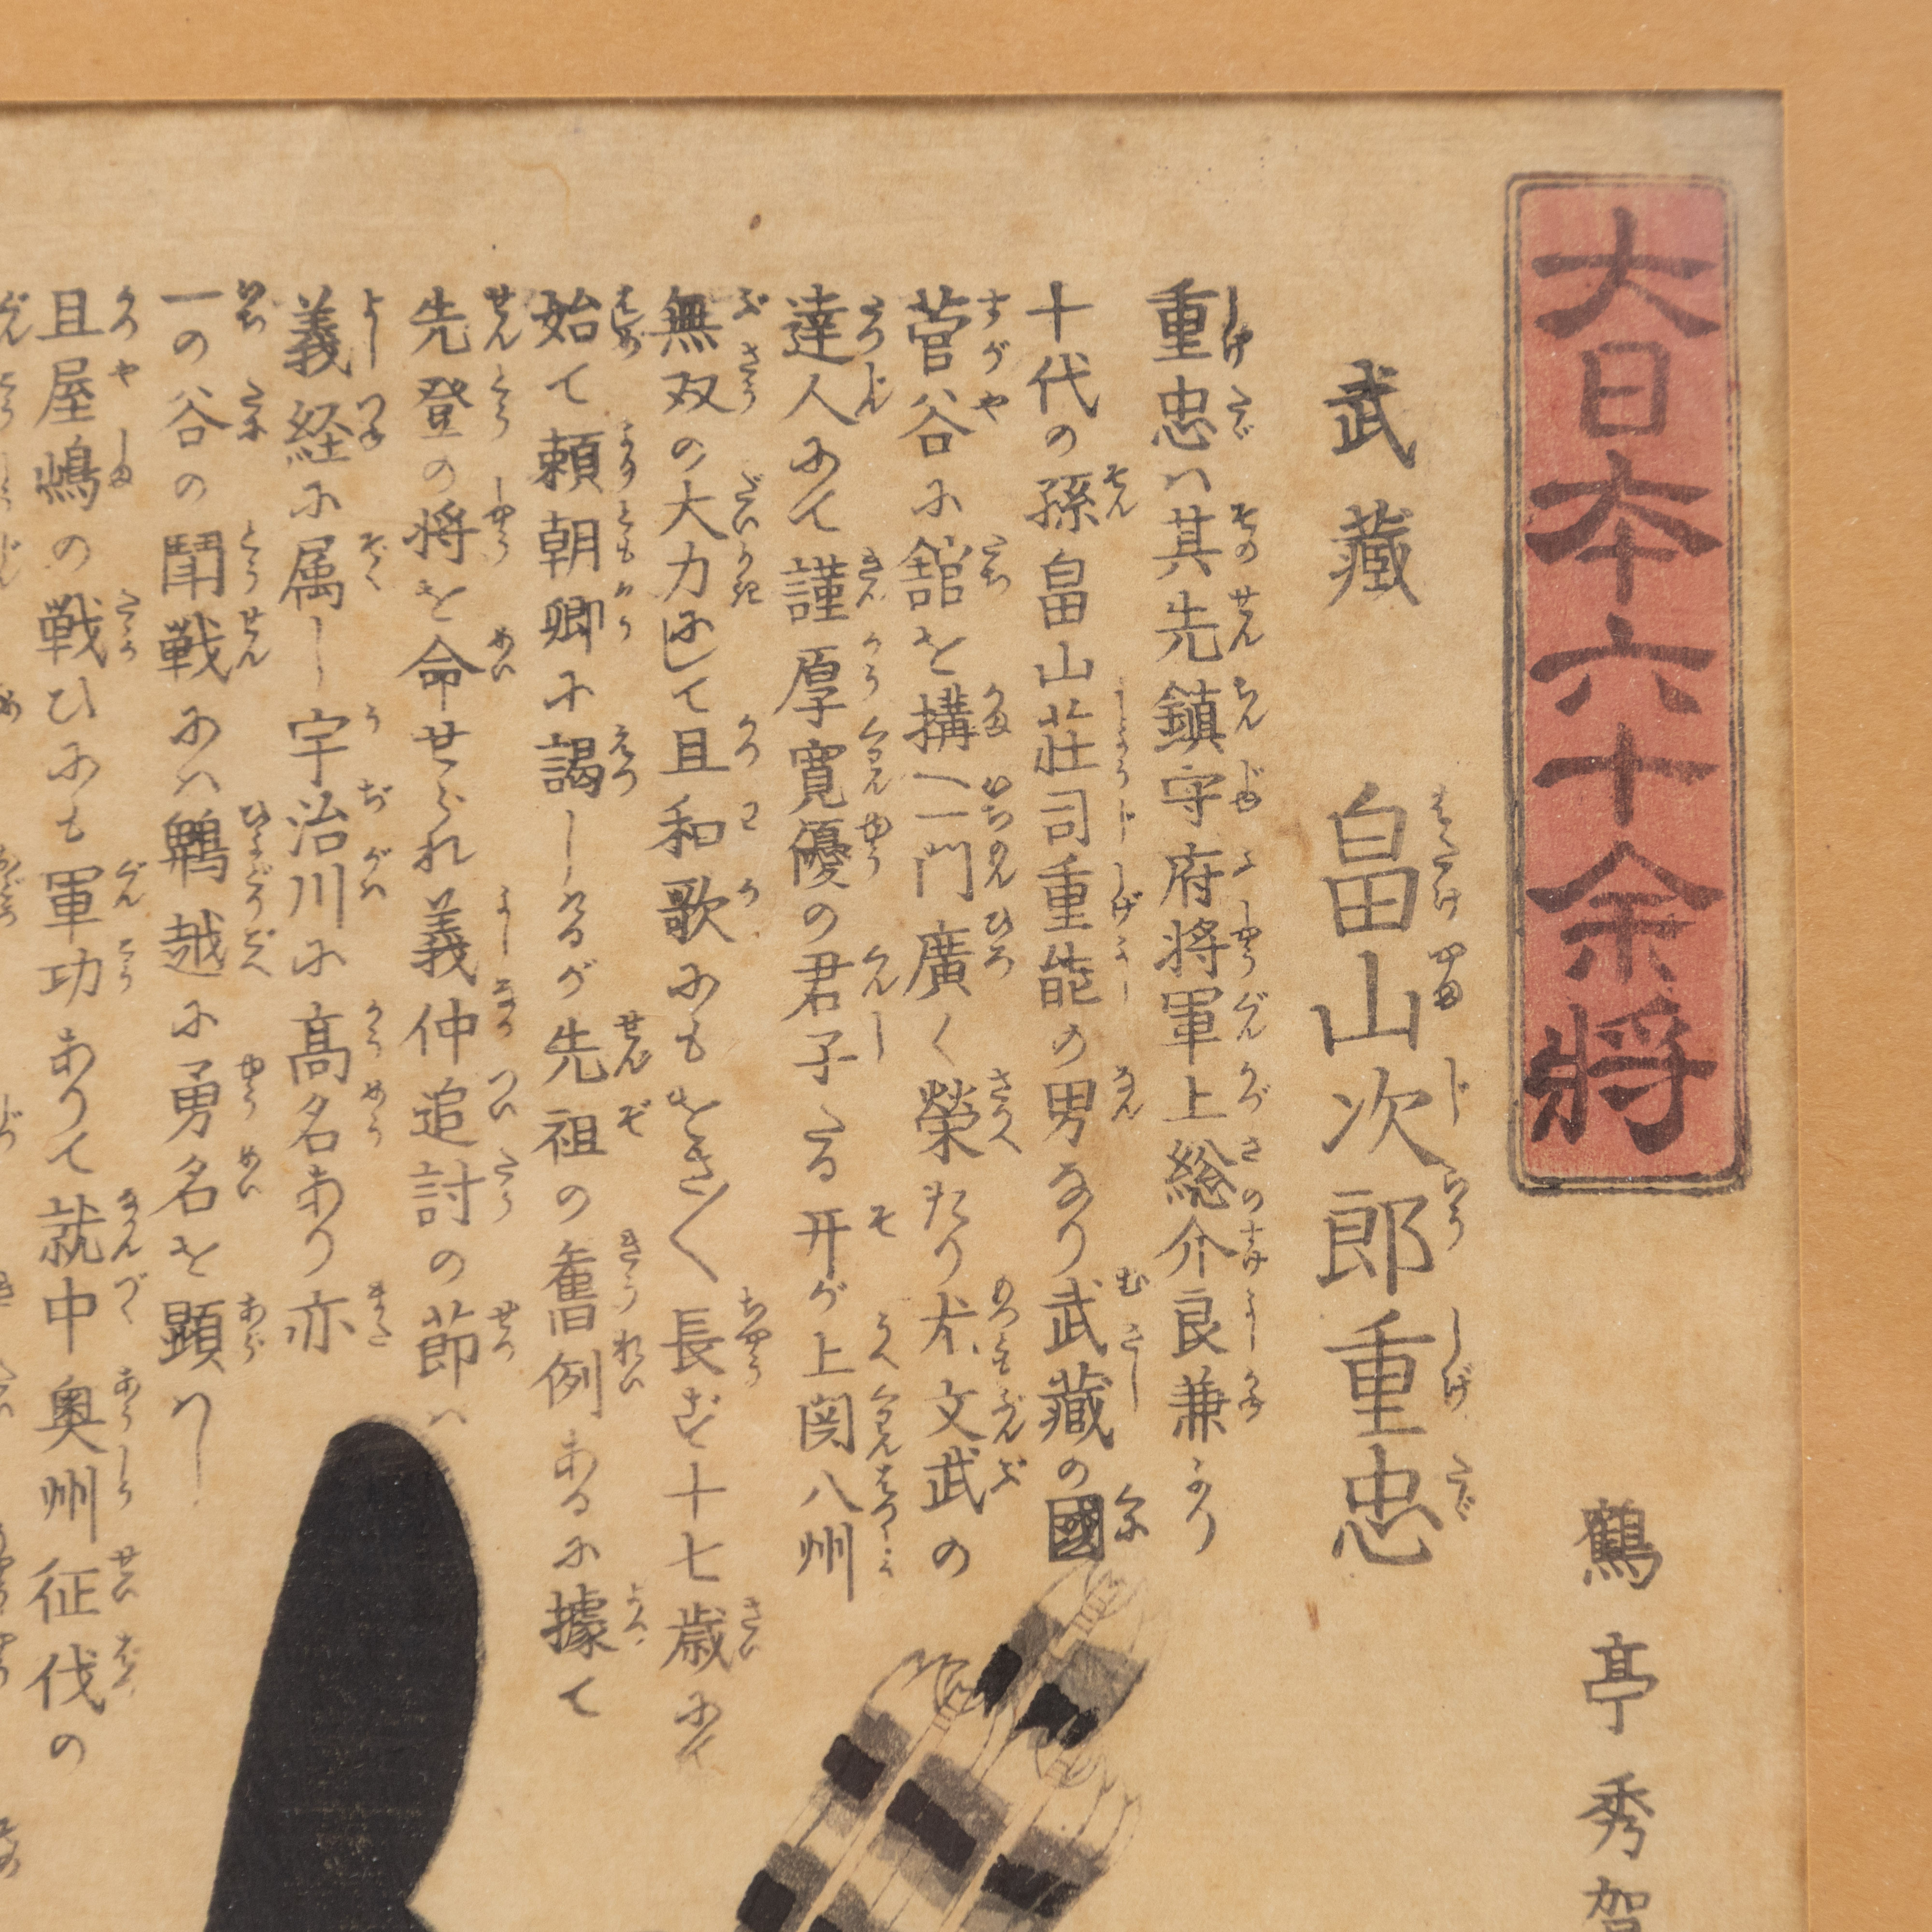 大日本六十余將
鶴亭秀賀
武藏　畠山次郎重忠
重忠ハ其先鎮守府将軍上総介良兼より
十代の孫畠山莊司重能の男なり武藏の國
菅谷に舘を搆へ一門廣く榮たり尤文武の
達人にて謹厚寛優の君子たる幵が上関八州
無双の大力にして且和歌にも
長ぜど十七歳にて
始て頼朝卿に謁しけるが先祖の舊例あるに據て
先登の将を命せられ義仲追討の節ハ
義経に属し宇治川に髙名あり亦
一の谷の鬪戦にハ鵯越に勇名を顕ハし
且屋嶋の戦ひにも軍功ありて就中奥州征伐の